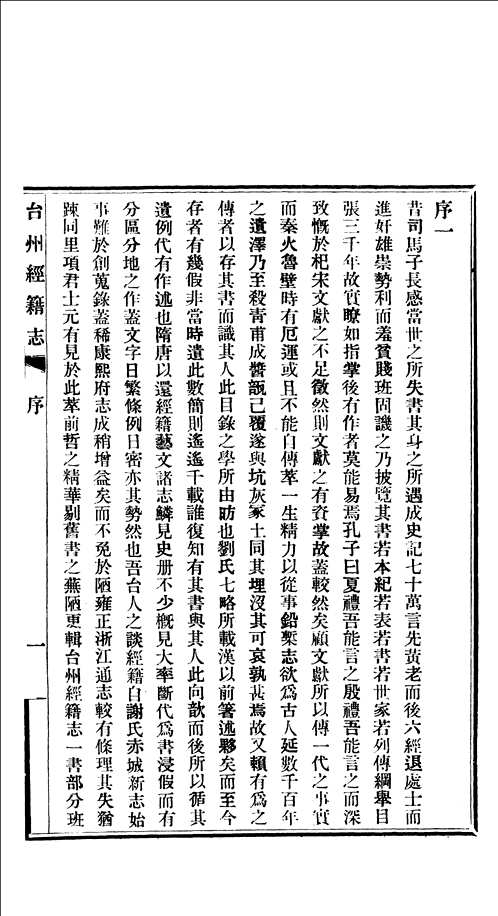 序一
昔司馬子長感當世之所失書其身之所遇成史記七十萬言先黃老而後六經退處士而
進奸雄崇勢利而羞貧賤班固譏之乃披覽其書若本紀若表若書若世家若列傳綱舉目
張三千年故實瞭如指掌後有作者莫能易焉孔子曰夏禮吾能言之殷禮吾能言之而深
致慨於杞宋文獻之不足徵然則文獻之有資掌故蓋較然矣顧文獻所以傳一代之事實
而秦火魯壁時有厄運或且不能自傳萃一生精力以從事鉛槧志欲爲古人延數千百年
之遺澤乃至殺青甫成醬瓿已覆遂與坑灰冢土同其埋沒其可哀孰甚焉故又賴有爲之
傳者以存其書而識其人此目錄之學所由昉也劉氏七略所載漢以前箸述夥矣而至今
存者有幾假非當時遺此數簡則遙遙千載誰復知有其書與其人此向歆而後所以循其
遺例代有作述也隋唐以還經籍藝文諸志鱗見史册不少槪見大率斷代爲書浸假而有
分區分地之作蓋文字日繁條例日密亦其勢然也吾台人之談經籍自謝氏赤城新志始
事難於創蒐錄蓋稀康熙府志成稍增益矣而不免於陋雍正浙江通志較有條理其失猶
踈同里項君士元有見於此萃前哲之精華剔舊書之蕪陋更輯台州經籍志一書部分班
台州經籍志
序
一